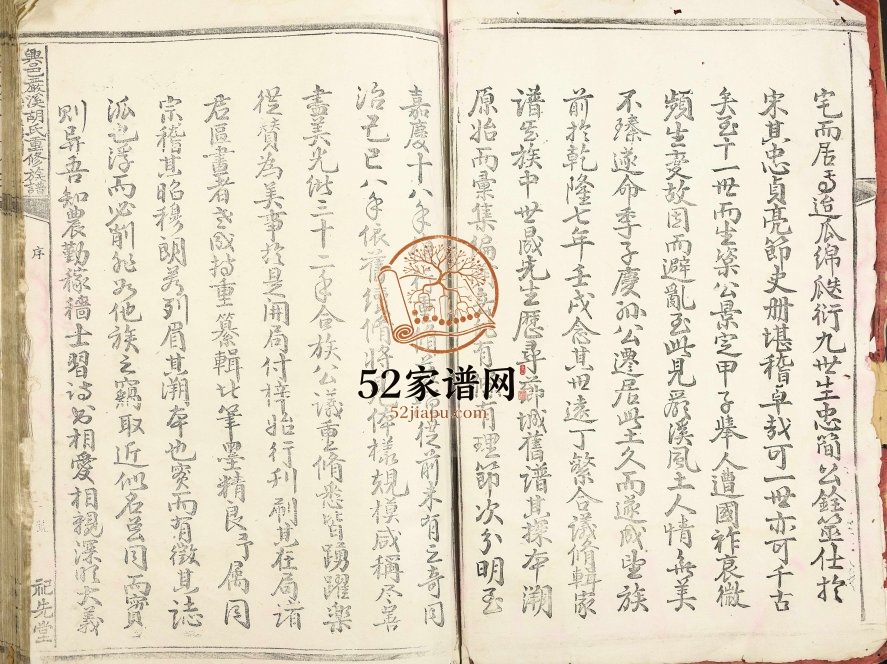 宅而居焉迨瓜綿瓞衍九世生忠簡公銓筮仕於
宋其忠貞亮節史冊堪稽卓哉可一世亦可千古
矣至十一世而生築公景定甲子舉人遭國祚衰微
頻生變故因而避亂至此見巖溪風土人情無美
不臻遂命季子慶公遷居此土久而遂成望族
前於乾隆七年壬戌念其世遠丁繁合議脩輯家
譜吾族中世晟先生歷尋城舊譜其探本溯
原始而彙集編有理節次分明至
嘉慶十八年從前未有之奇同
治己巳八年依舊續脩體樣規模咸稱尽善
盡美光緒三十二年合族公議重脩悉皆踴躍樂
從贊為美事於是開局付梓始行刊刷其在局諸
君區畫者老成持重纂輯比筆墨精良予屬同
宗稽其昭穆朗若列眉其溯本也實而有徵其誌
派也浮而必削非如他族之竊取近似名同而實
則异吾知農勤稼穡士習詩書相愛相親深明大義
興邑巖溪胡氏重修族譜
序
祀先堂
52家谱网
52jiapu.com